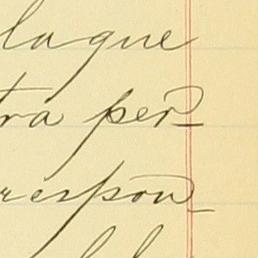 lague
tra per-
respon-